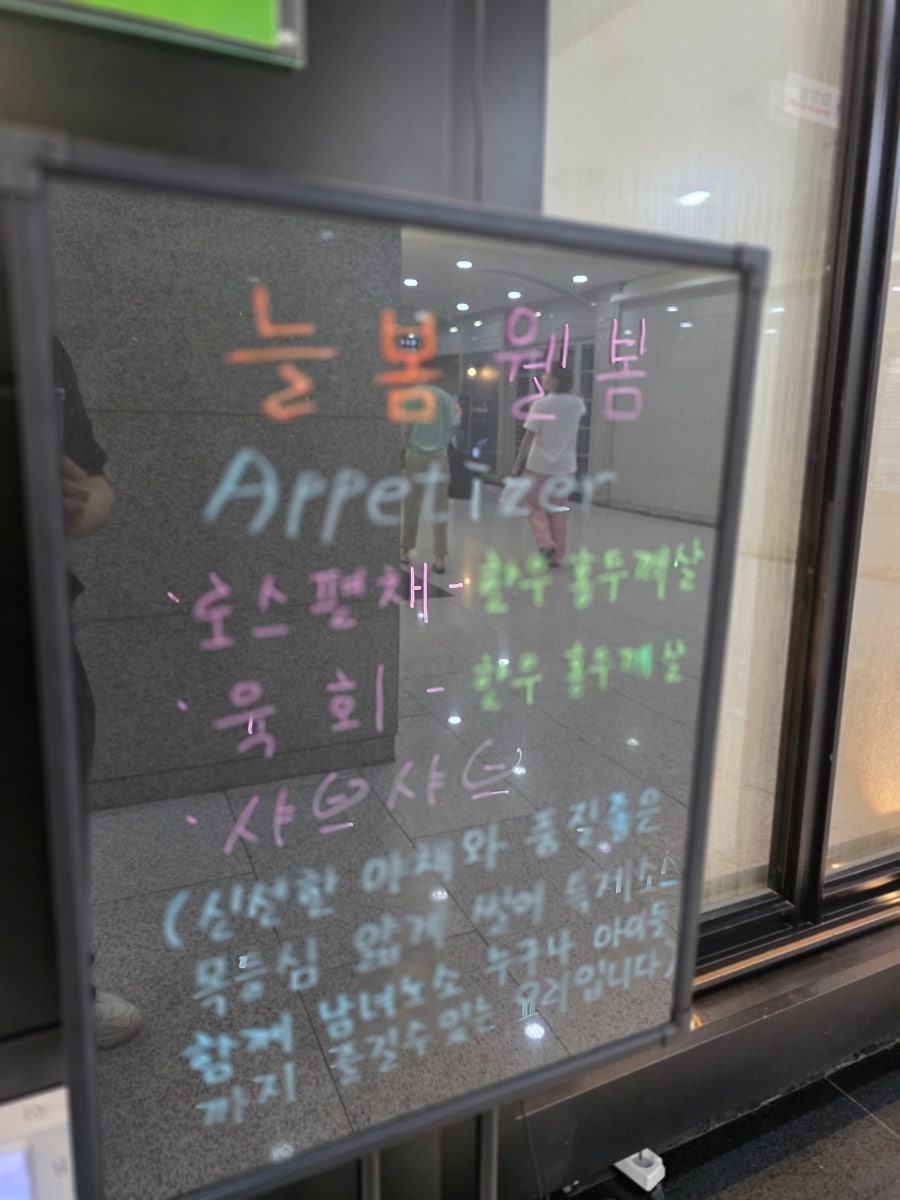 늘 봄 웰 봄
Appetizer
· 로스편채 - 한우 홍두깨살
· 육 회 - 한우 홍두깨살
· 샤브샤브
(신선한 야채와 품질좋은
목등심 얇게 썰어 특제소스
함께 남녀노소 누구나 아이들
까지 즐길수있는 요리입니다)